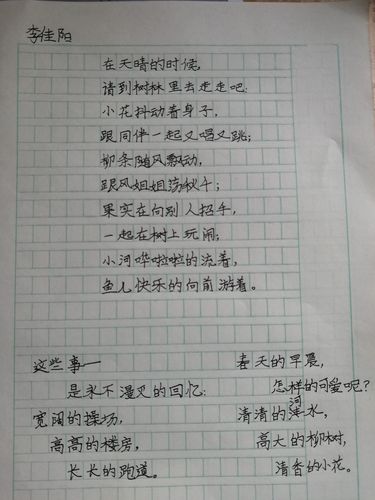 李佳阳
在天晴的时候,
请到树林里去走走吧:
小花抖动着身子,
跟同伴一起又唱又跳;
柳条随风飘动,
跟风姐姐荡秋千;
果实在向别人招手,
一起在树上玩闹;
小河哗啦啦的流着,
鱼儿快乐的向前游着。
这些事——
是永不漫灭的回忆:
宽阔的操场,
高高的楼房,
长长的跑道。
春天的早晨,
怎样的可爱呢?
清清的河水,
高大的柳树,
清香的小花。